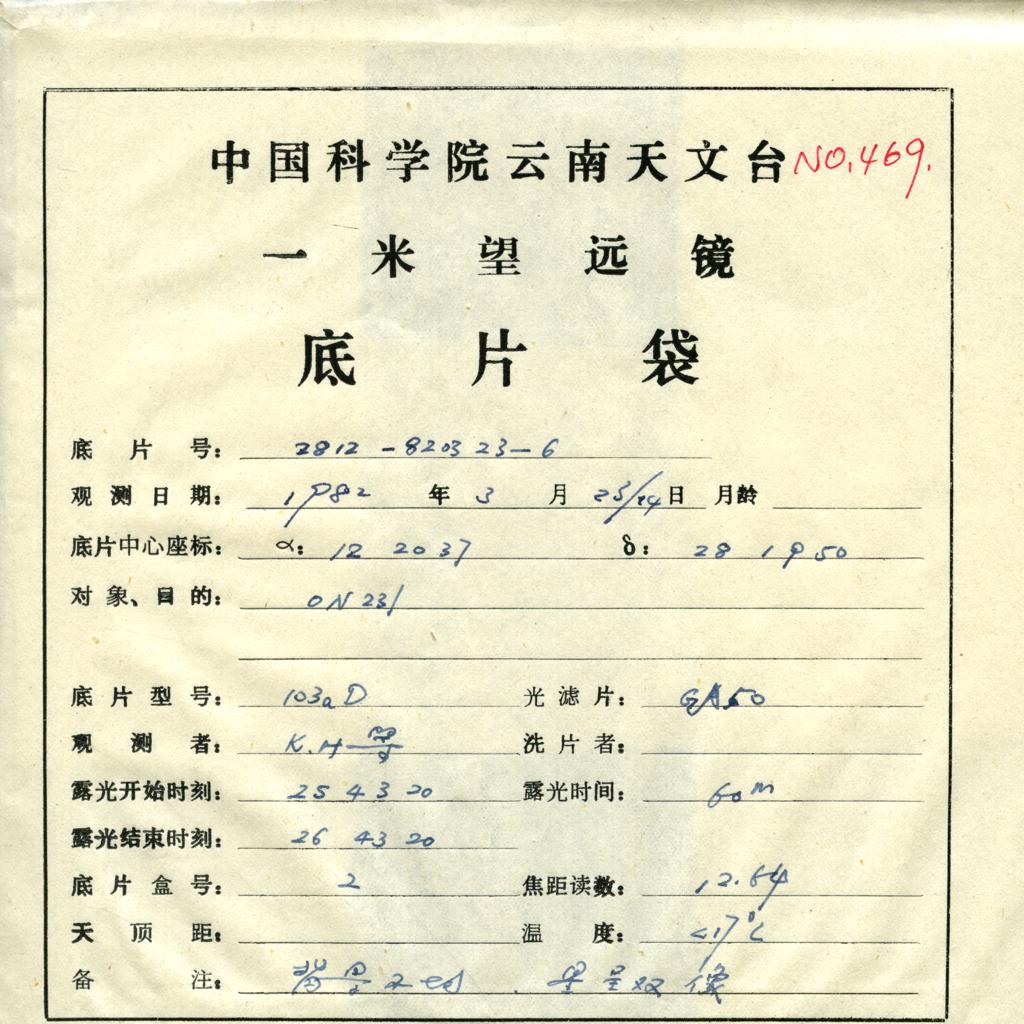 中国科学院云南天文台 NO.469.
一米望远镜
底片袋
底片号： 2812-820323-6
观测日期： 1982 年 3 月 23/24 日 月龄
底片中心座标： α： 12 20 37 δ： 28 19 50
对象、目的： ON 231
底片型号： 103aD 光滤片：
观测者： K.H 洗片者：
露光开始时刻： 25 43 20 露光时间： 60m
露光结束时刻： 26 43 20
底片盒号： 2 焦距读数： 12.64
天顶距： 温度： <17°C
备注： 星呈双像